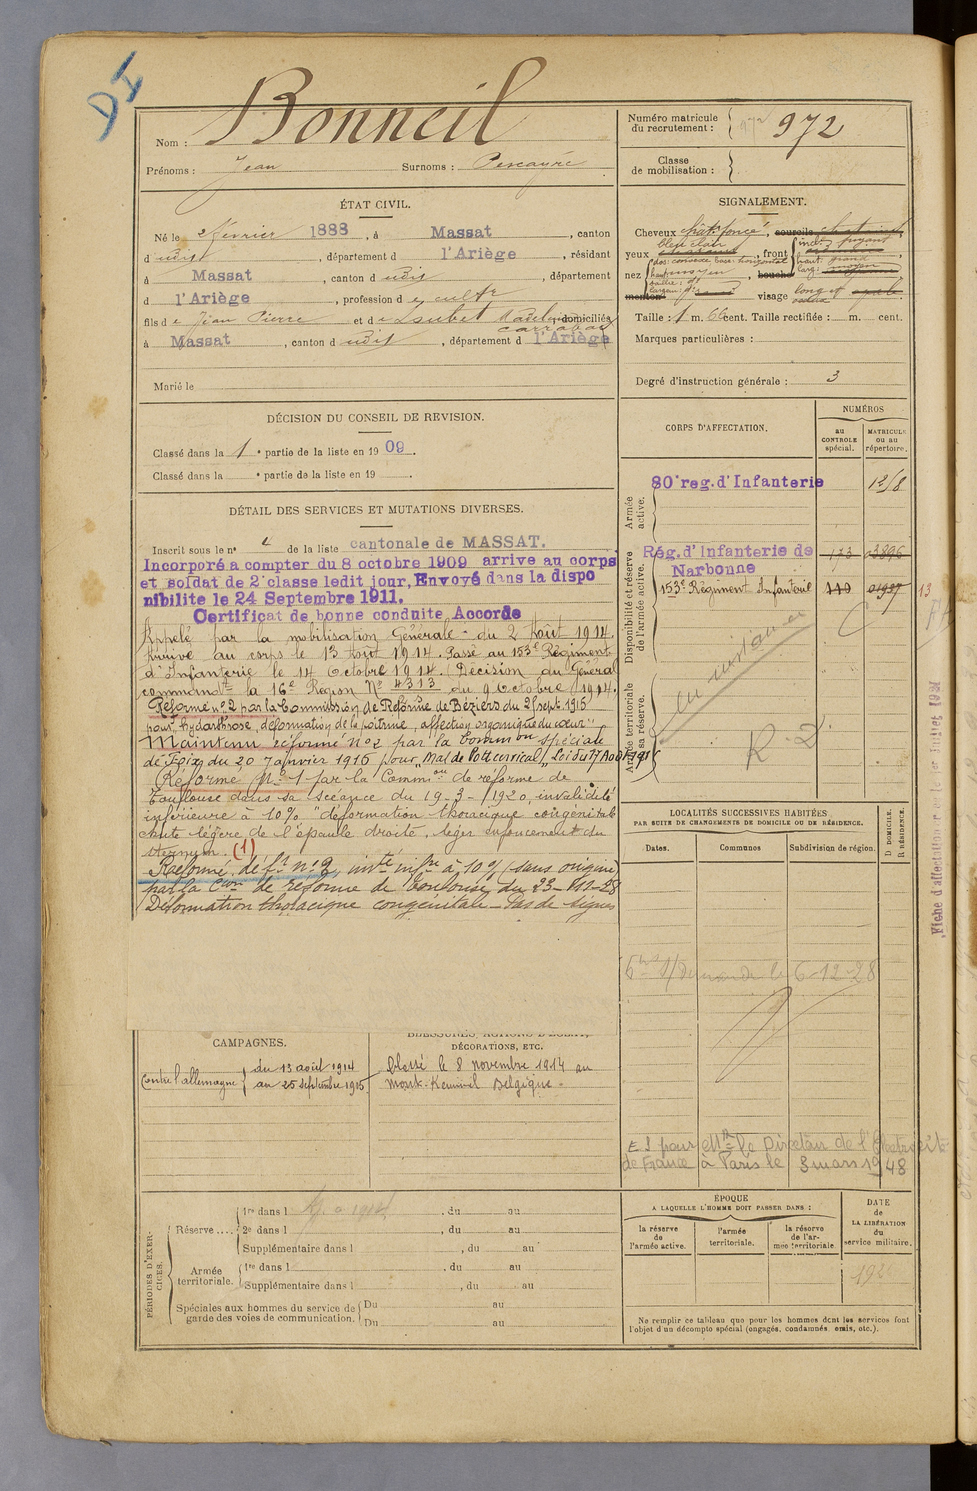 DI
Nom : Bonneil
Prénoms : Jean Surnoms :
Numéro matricule du recrutement : 972 972
Classe de mobilisation :
ÉTAT CIVIL.
Né le 2 février 1888, à Massat, canton
d udit, département d l'Ariège, résidant
à Massat, canton d udit, département
d l'Ariège, profession de cultr
fils de Jean Pierre et de Loubet domiciliés
à Massat, canton d udit, département d l'Ariège
Marié le
SIGNALEMENT.
Cheveux chât. foncé, sourcils
bleu clair
yeux, front
nez, bouche
menton visage long
Taille : 1 m. 66 cent. Taille rectifiée : m. cent.
Marques particulières :
Degré d'instruction générale : 3
DÉCISION DU CONSEIL DE REVISION.
Classé dans la 1e partie de la liste en 1909.
Classé dans la e partie de la liste en 19 .
CORPS D'AFFECTATION.
NUMÉROS
au CONTROLE spécial.
MATRICULE ou au répertoire.
Armée active.
80e reg. d'Infanterie
Disponibilité et réserve de l'armée active.
Rég. d'Infanterie de Narbonne 173 03896
153e Régiment Infanterie 110 01997 13
Armée territoriale et sa réserve.
DÉTAIL DES SERVICES ET MUTATIONS DIVERSES.
Inscrit sous le n° 4 de la liste cantonale de MASSAT.
Incorporé a compter du 8 octobre 1909 arrive au corps
et soldat de 2e classe ledit jour, Envoyé dans la dispo
nibilite le 24 Septembre 1911.
Certificat de bonne conduite Accorde
Appelé par la mobilisation Générale du 2 Août 1914.
Arrivé au corps le 13 Août 1914. Passé au 153e Régiment
d'Infanterie le 14 octobre 1914. (Décision du Général
commandt la 16e Région N° 4313 du 9 octobre 1914.
Réformé n°2 par la Commission de Réforme de Béziers du 25 sept. 1915
pour "hydarthrose, déformation de la poitrine, affection organique du cœur"
Maintenu réformé n°2 par la Common spéciale
de Foix du 20 Janvier 1916 pour "Mal de Pott cervical" Loi du 17 Août 1915
Réformé N° 1 par la Common de réforme de
Toulouse dans sa scéance du 19-3-1920, invalidité
inférieure à 10% "déformation thoracique congénitale
chute légère de l'épaule droite, léger enfoncement du
sternum. (1)
Réformé def.t n°2, invté infre à 10% (sans origine)
par la Cion de réforme de Toulouse du 23-
Déformation thoracique congénitale - Pas de signes
R.2
LOCALITÉS SUCCESSIVES HABITÉES
PAR SUITE DE CHANGEMENTS DE DOMICILE OU DE RÉSIDENCE.
Dates. Communes Subdivision de région.
D DOMICILE. R RÉSIDENCE.
6-12-28
E S pour Mr le Directeur de l'Electricité
de France à Paris le 3 mars 1948
Fiche d'affectation
CAMPAGNES.
Contre l'allemagne du 13 août 1914
au 25 septembre 1915
BLESSURES, ACTIONS D'ÉCLAT, DÉCORATIONS, ETC.
Blessé le 8 novembre 1914 au
mont-Kemmel Belgique.
PÉRIODES D'EXERCICES.
Réserve....
1re dans l , du au
2e dans l , du au
Supplémentaire dans l , du au
Armée territoriale.
1re dans l , du au
Supplémentaire dans l , du au
Spéciales aux hommes du service de garde des voies de communication.
Du au
Du au
ÉPOQUE
A LAQUELLE L'HOMME DOIT PASSER DANS :
la réserve de l'armée active.
l'armée territoriale.
la réserve de l'armée territoriale
DATE de LA LIBÉRATION du service militaire.
Ne remplir ce tableau que pour les hommes dont les services font
l'objet d'un décompte spécial (engagés, condamnés, omis, etc.).